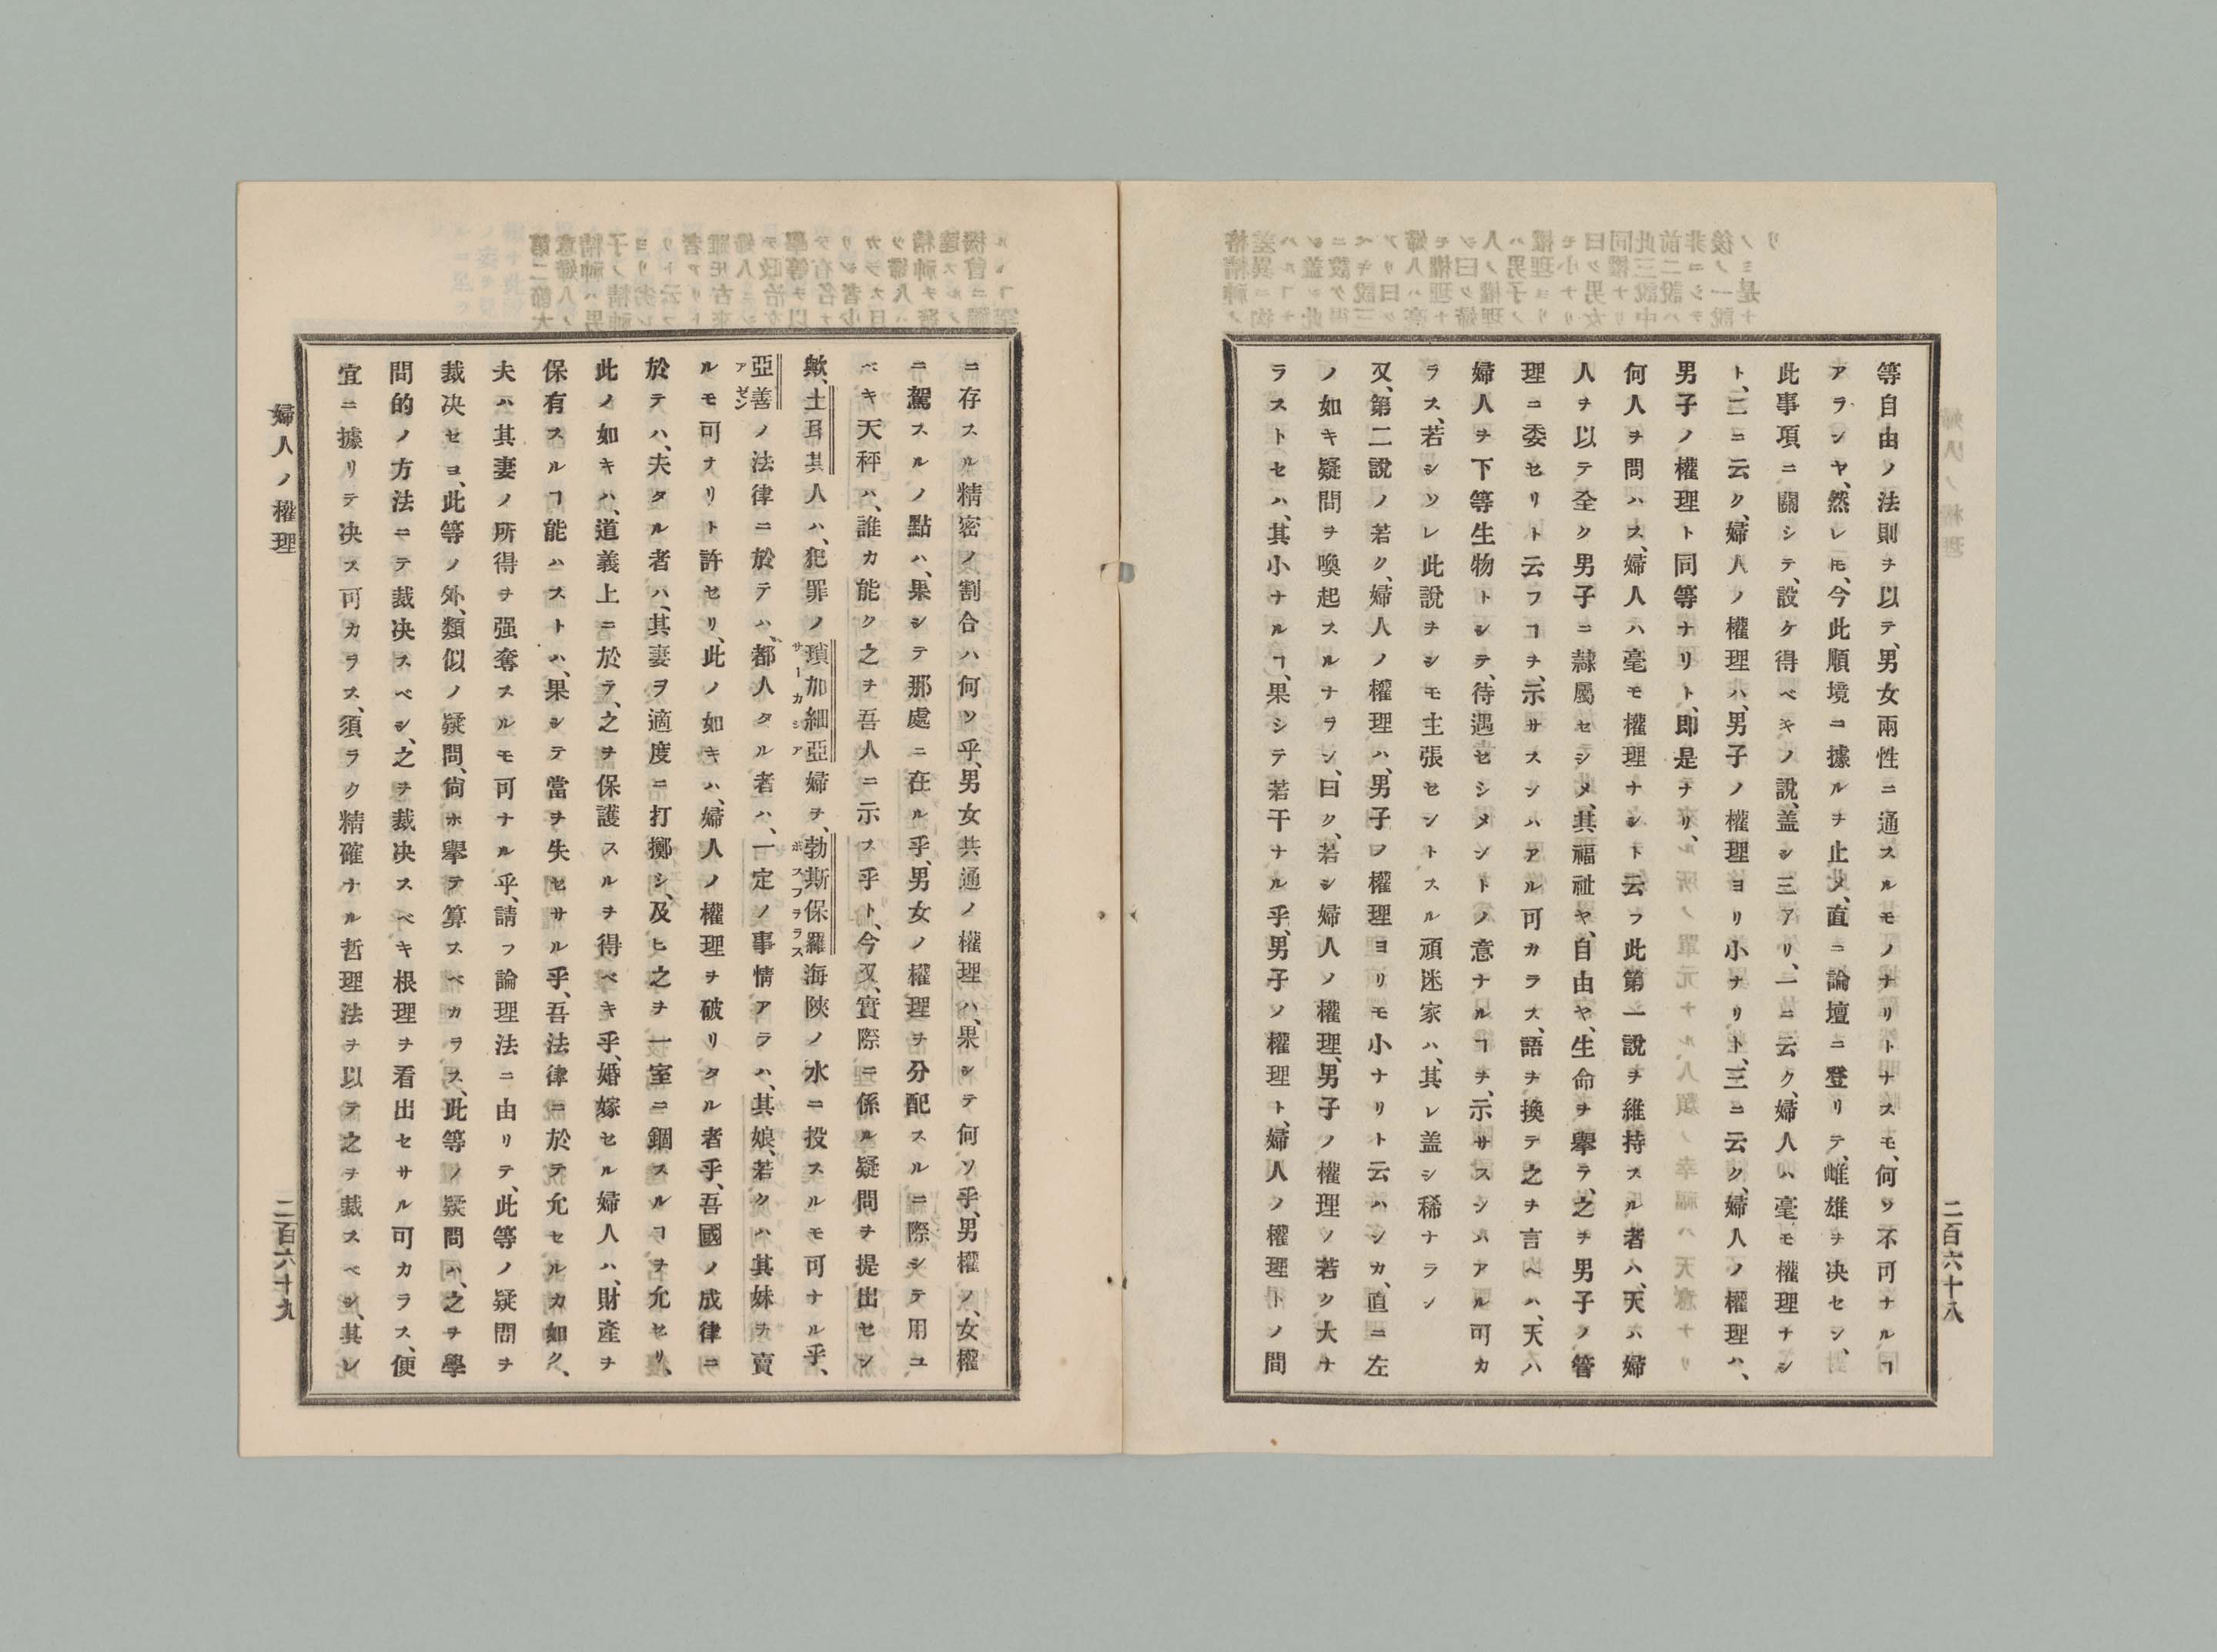 二百六十八
等自由ノ法則ヲ以テ、男女兩性ニ通スルモノナリトナスモ、何ソ不可ナルヿ
アランヤ、然レ𪜈、今此順境ニ據ルヲ止メ、直ニ論壇ニ登リテ、雌雄ヲ决セン、
此事項ニ關シテ、設ケ得ベキノ說、蓋シ三アリ、一ニ云ク、婦人ハ毫モ權理ナシ
ト、二ニ云ク、婦人ノ權理ハ、男子ノ權理ヨリ小ナリト、三ニ云ク、婦人ノ權理ハ、
男子ノ權理ト同等ナリト、即是ナリ、
何人ヲ問ハス、婦人ハ毫モ權理ナシト云フ此第一說ヲ維持スル者ハ、天ハ婦
人ヲ以テ全ク男子ニ隷屬セシメ、其福祉ヤ、自由ヤ、生命ヲ擧ラ、之ヲ男子ノ管
理ニ委セリト云フヿヲ、示サスンハアル可カラス、語ヲ換テ之ヲ言ヘハ、天ハ
婦人ヲ下等生物トシテ、待遇セシメントノ意ナルヿヲ、示サスンハアル可カ
ラス、若シソレ此說ヲシモ主張セントスル頑迷家ハ、其レ蓋シ稀ナラン
又、第二說ノ若ク、婦人ノ權理ハ、男子ノ權理ヨリモ小ナリト云ハンカ、直ニ左
ノ如キ疑問ヲ喚起スルナラン、曰ク、若シ婦人ノ權理、男子ノ權理ノ若ク大ナ
ラストセハ、其小ナルヿ、果シテ若干ナル乎、男子ノ權理ト、婦人ノ權理トノ間
ニ存スル精密ノ割合ハ何ソ乎、男女共通ノ權理ハ、果シテ何ソ乎、男權ノ、女權
ニ駕スルノ點ハ、果シテ那處ニ在ル乎、男女ノ權理ヲ分配スルニ際シテ用ユ
ベキ天秤ハ、誰カ能ク之ヲ吾人ニ示ス乎ト、今又、實際ニ係ル疑問ヲ提出セン
歟、土耳其人ハ、犯罪ノ瑣加細亞婦ヲ、勃斯保羅海陝ノ水ニ投スルモ可ナル乎、
サーカシア
ボスフヲラス
亞善ノ法律ニ於テハ、都人タル者ハ、一定ノ事情アラハ、其娘、若クハ其妹ヲ賣
アゼン
ルモ可ナリト許セリ、此ノ如キハ、婦人ノ權理ヲ破リタル者乎、吾國ノ成律ニ
於テハ、夫タル者ハ、其妻ヲ適度ニ打擲シ、及ヒ之ヲ一室ニ錮スルヿヲ允セリ、
此ノ如キハ、道義上ニ於テ、之ヲ保護スルヲ得ベキ乎、婚嫁セル婦人ハ、財產ヲ
保有スルヿ能ハストハ、果シテ當ヲ失セサル乎、吾法律ニ於テ允セルカ如ク、
夫ハ其妻ノ所得ヲ强奪スルモ可ナル乎、請フ論理法ニ由リテ、此等ノ疑問ヲ
裁决セヨ、此等ノ外、類似ノ疑問、尙ホ擧テ算スベカラス、此等ノ疑問ハ、之ヲ學
問的ノ方法ニテ裁决スベシ、之ヲ裁决スベキ根理ヲ看出セサル可カラス、便
宜ニ據リテ决ス可カラス、須ラク精確ナル哲理法ヲ以テ之ヲ裁スベシ、其レ
婦人ノ權理
二百六十九